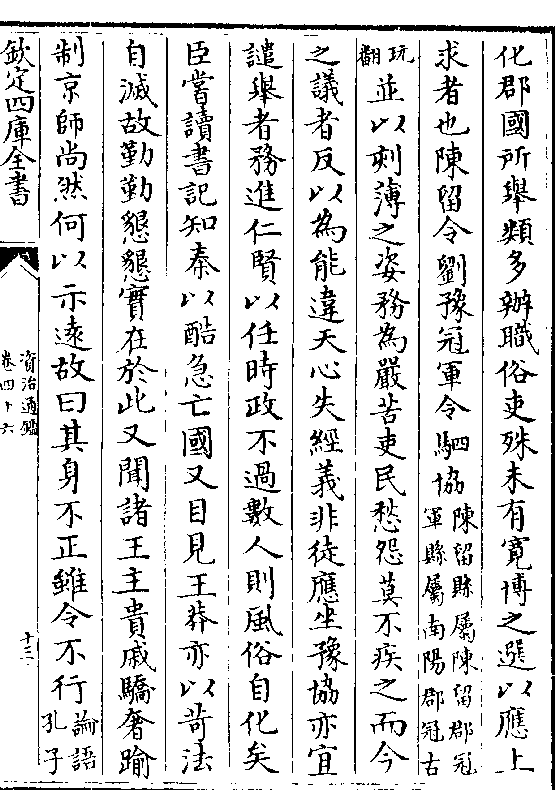 化郡國所舉類多辦職俗吏殊未有寛博之選以應上
求者也陳留令劉豫冠軍令駟協陳留縣屬陳留郡冠
軍縣屬南陽郡冠古
玩
翻並以刻薄之姿務為嚴苦吏民愁怨莫不疾之而今
之議者反以為能違天心失經義非徒應坐豫協亦宜
譴舉者務進仁賢以任時政不過數人則風俗自化矣
臣嘗讀書記知秦以酷急亡國又目見王莽亦以苛法
自滅故勤勤懇懇實在於此又聞諸王主貴戚驕奢踰
制京師尚然何以示逺故曰其身不正雖令不行論語
孔子
欽定四庫全書
資治通鑑
卷四十六
十三